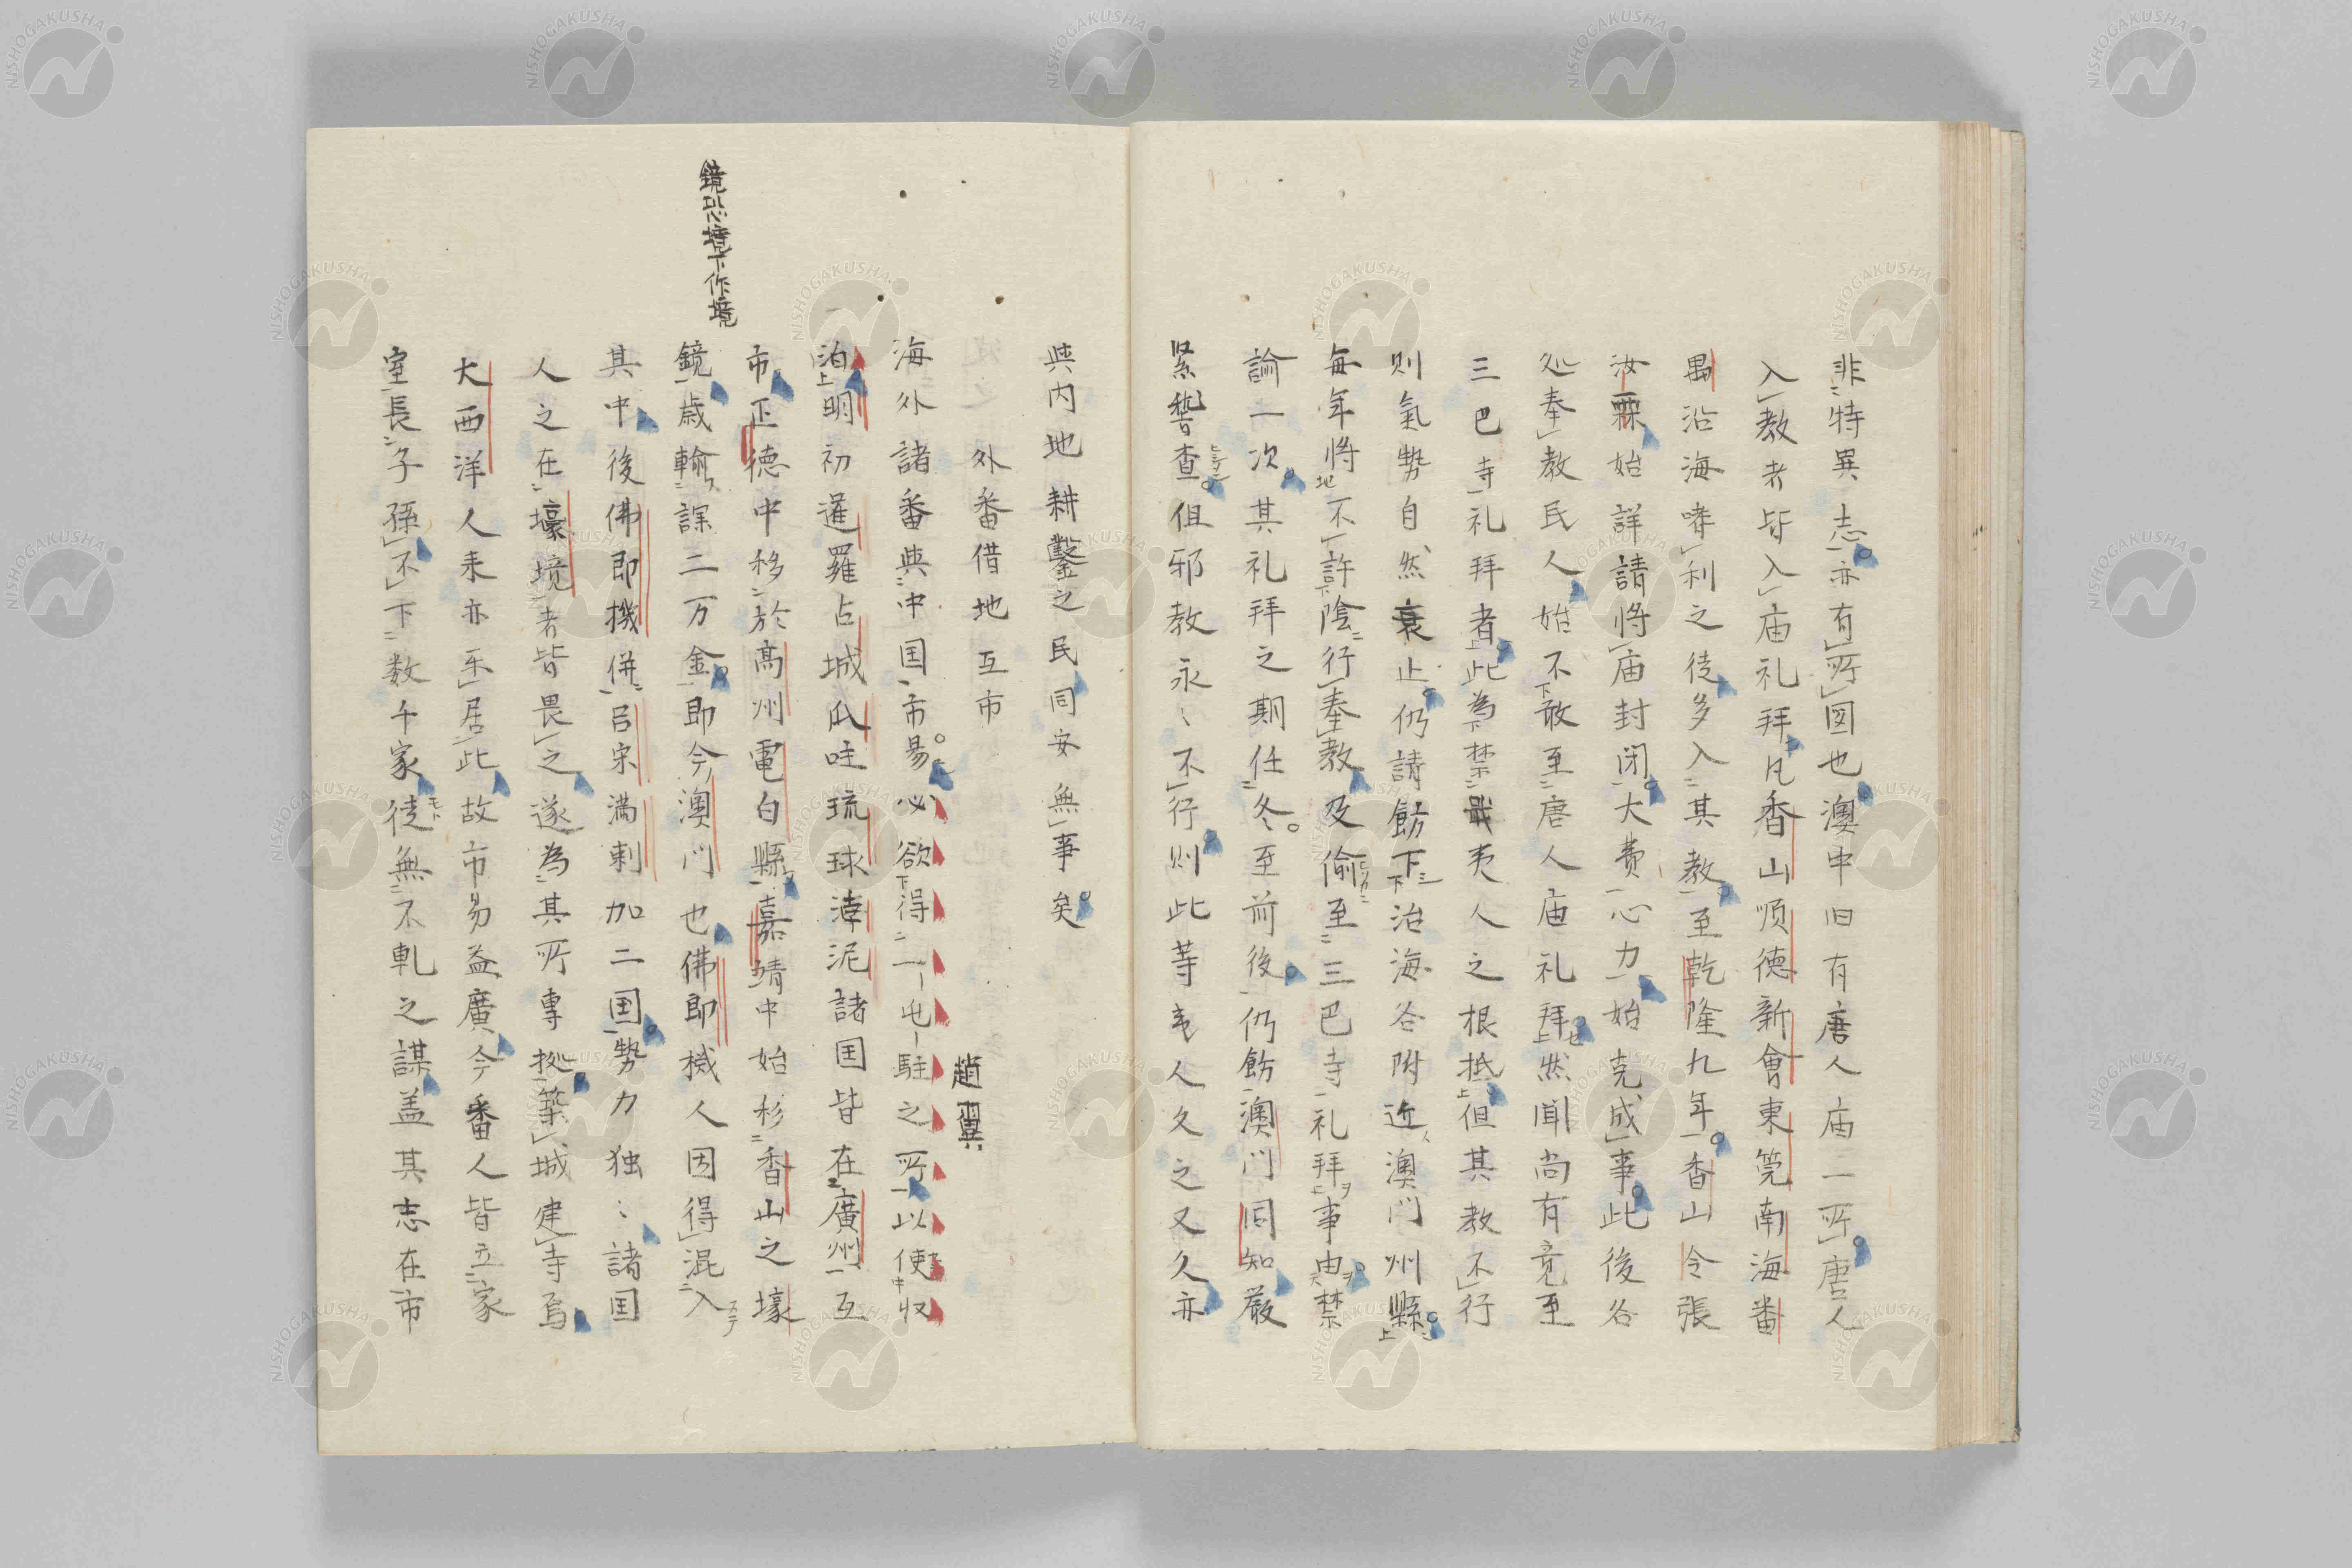 非特異志亦有所図也澳中旧有唐人庙一所唐人
入教者皆入庙礼拜凡香山順德新會東筦南海番
禺沿海嗜利之徒多入其教至乾隆九年香山令張
汝霖始詳請將庙封闭大費心力始克成事此後各
処奉教民人始不敢至唐人庙礼拜然聞尚有竟至
三巴寺礼拜者此為禁戢夷人之根抵但其教不行
则氣勢自然衰止仍請飭下沿海各附近澳门州縣
每年將不許陰行奉教及偷至三巴寺礼拜事由禁
諭一次其礼拜之期任冬至前後仍飭澳门同知嚴
緊稽查但邪教永〻不行则此等夷人久之又久亦
與内地耕鑿之民同安無事矣
外番借地互市
趙翼
海外諸番與中国市易必欲得一屯駐之所以便收
泊明初暹羅占城瓜哇琉球浡泥諸国皆在廣州互
市正德中移於高州電白縣嘉靖中始移香山之壕
鏡歳輸課二万金即今澳门也佛郎機人因得混入
其中後佛郎機併吕宋満剌加二国勢力独〻諸国
人之在壕境者皆畏之遂為其所專拠築城建寺焉
大西洋人来亦乐居此故市易益廣今番人皆立家
室長子孫不下数千家徒無不軌之謀盖其志在市
鏡恐境下作境
NISHOGAKUSHA